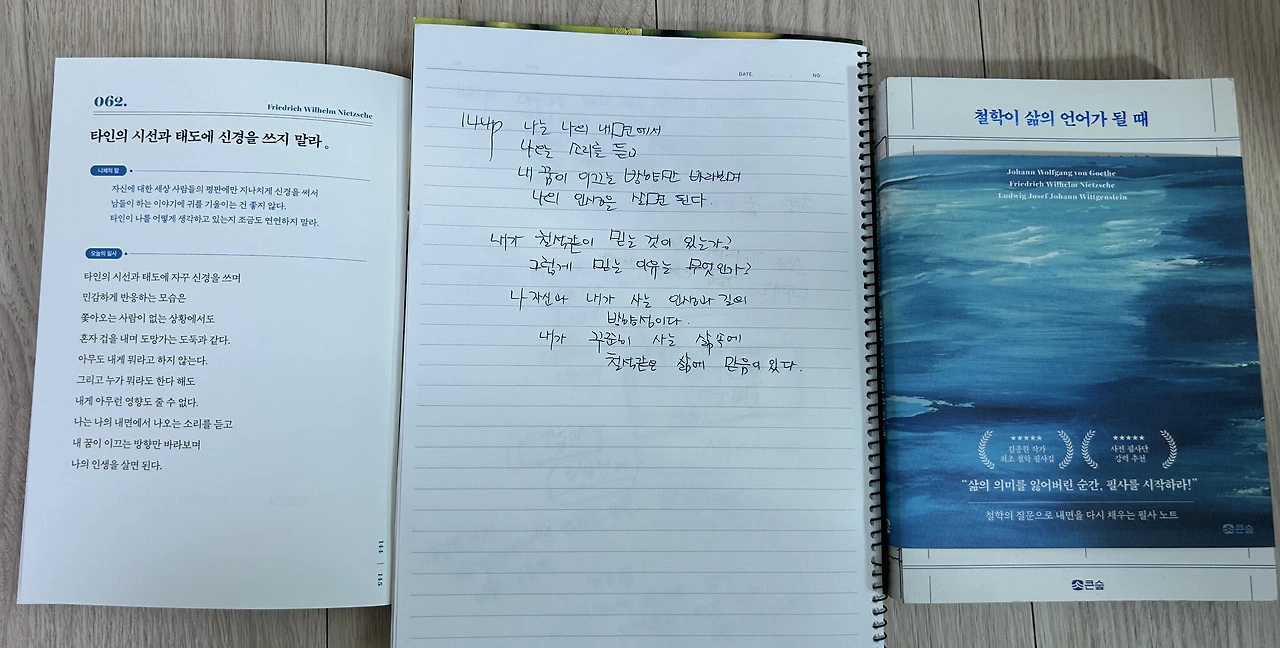 062.
Friedrich Wilhelm Nietzsche
타인의 시선과 태도에 신경을 쓰지 말라。
니체의 말
자신에 대한 세상 사람들의 평판에만 지나치게 신경을 써서
남들이 하는 이야기에 귀를 기울이는 건 좋지 않다.
타인이 나를 어떻게 생각하고 있는지 조금도 연연하지 말라.
오늘의 필사
타인의 시선과 태도에 자꾸 신경을 쓰며
민감하게 반응하는 모습은
쫓아오는 사람이 없는 상황에서도
혼자 겁을 내며 도망가는 도둑과 같다.
아무도 내게 뭐라고 하지 않는다.
그리고 누가 뭐라도 한다 해도
내게 아무런 영향도 줄 수 없다.
나는 나의 내면에서 나오는 소리를 듣고
내 꿈이 이끄는 방향만 바라보며
나의 인생을 살면 된다.
144 | 145
DATE.
NO.
144p 나는 나의 내면에서
나오는 소리를 듣고
내 꿈이 이끄는 방향만 바라보며
나의 인생을 살면 된다.
내가 철석같이 믿는 것이 있는가?
그렇게 믿는 이유는 무엇인가?
나 자신과 내가 사는 인생과 길의
방향성이다.
내가 꾸준히 사는 삶속에
철석같은 삶에 믿음이 있다.
철학이 삶의 언어가 될 때
Johann Wolfgang von Goethe
Friedrich Wilhelm Nietzsche
Ludwig Josef Johann Wittgenstein
★★★★★
김종원 작가
최초 철학 필사집
★★★★★
사전 필사단
강력 추천
“삶의 의미를 잃어버린 순간, 필사를 시작하라!”
철학의 질문으로 내면을 다시 채우는 필사 노트
큰숲
큰숲